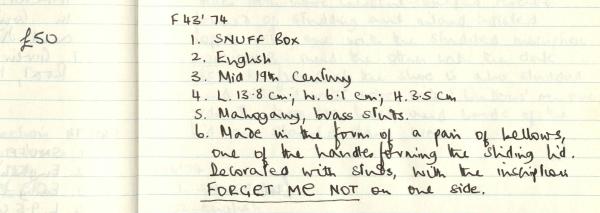 F43'74
£50
1. SNUFF BOX
2. English
3. Mid 19th Century
4. L. 13.8 cm; W. 6.1 cm; H. 3.5 cm
5. Mahogany, brass studs.
6. Made in the form of a pair of bellows,
one of the handles forming the sliding lid.
Decorated with studs, with the inscription
FORGET ME NOT on one side.